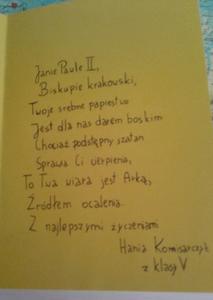 Janie Pawle II,
Biskupie krakowski,
Twoje srebrne papiestwo
Jest dla nas darem boskim
Chociaż podstępny szatan
Sprawia Ci cierpienia,
To Twa wiara jest Arką,
Źródłem ocalenia.
Z najlepszymi życzeniami
Hania Komisarczyk
z klasy V